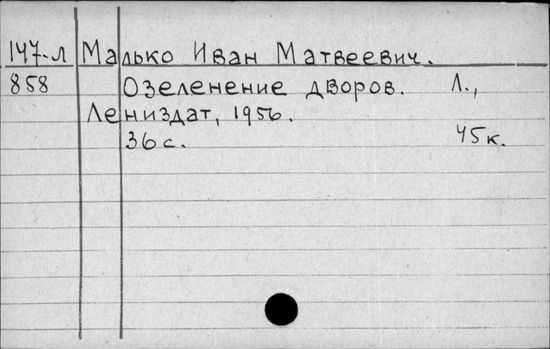 147-л Малько Иван Матвеевич.
858 Озеленение дворов. Л.,
Лениздат, 1956.
36 с. 45 к.